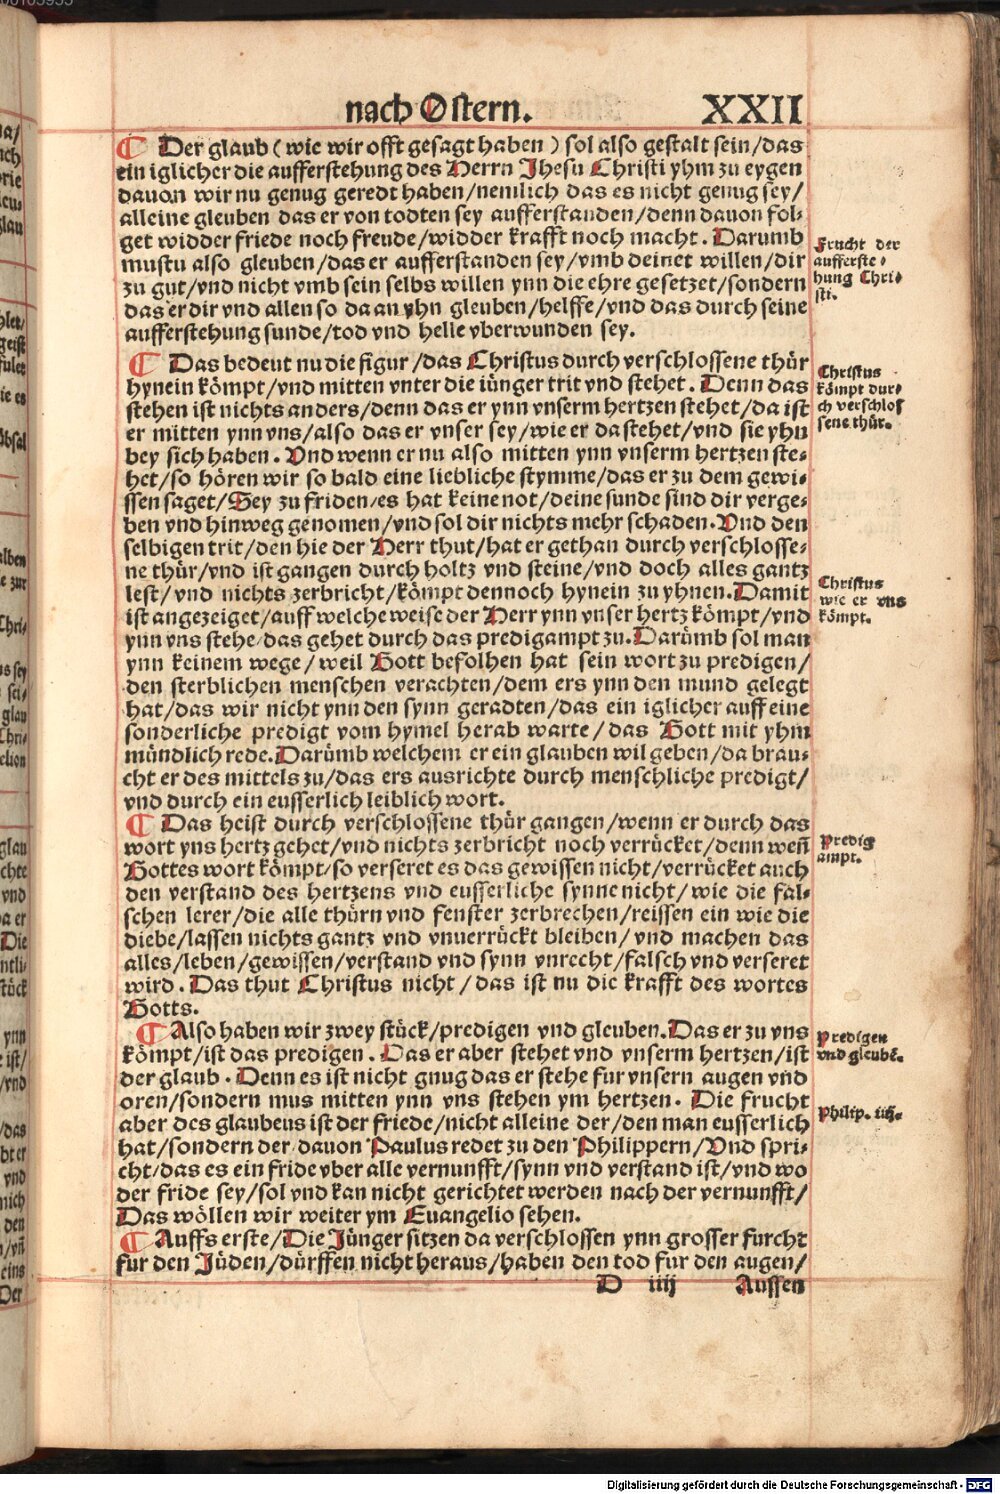 nach Ostern. XXII
Der glaub ( wie wir offt gesagt haben ) sol also gestalt sein/das
ein iglicher die aufferstehung des Herrn Jhesu Christi yhm zu eygen
dauon wir nu genug geredt haben/nemlich das es nicht genug sey/
alleine gleuben das er von todten sey aufferstanden/denn dauon fol-
get widder friede noch freude/widder krafft noch macht. Darumb
mustu also gleuben/das er aufferstanden sey/vmb deinet willen/dir
zu gut/vnd nicht vmb sein selbs willen ynn die ehre gesetzet/sondern
das er dir vnd allen so da an yhn gleuben/helffe/vnd das durch seine
aufferstehung sunde/tod vnd helle vberwunden sey.
Frucht der
aufferste-
hung Chri-
sti.
Das bedeut nu die figur/das Christus durch verschlossene thür
hynein kömpt/vnd mitten vnter die iünger trit vnd stehet. Denn das
stehen ist nichts anders/denn das er ynn vnserm hertzen stehet/da ist
er mitten ynn vns/also das er vnser sey/wie er da stehet/vnd sie yhn
bey sich haben. Vnd wenn er nu also mitten ynn vnserm hertzen ste-
het/so hören wir so bald eine liebliche stymme/das er zu dem gewi-
ssen saget/Sey zu friden/es hat keine not/deine sunde sind dir verge-
ben vnd hinweg genomen/vnd sol dir nichts mehr schaden. Vnd den
selbigen trit/den hie der Herr thut/hat er gethan durch verschlosse-
ne thür/vnd ist gangen durch holtz vnd steine/vnd doch alles gantz
lest/vnd nichts zerbricht/kömpt dennoch hynein zu yhnen. Damit
ist angezeiget/auff welche weise der Herr ynn vnser hertz kömpt/vnd
ynn vns stehe/das gehet durch das predigampt zu. Darümb sol man
ynn keinem wege/weil Gott befolhen hat sein wort zu predigen/
den sterblichen menschen verachten/dem ers ynn den mund gelegt
hat/das wir nicht ynn den synn geradten/das ein iglicher auff eine
sonderliche predigt vom hymel herab warte/das Gott mit yhm
mündlich rede. Darümb welchem er ein glauben wil geben/da brau-
cht er des mittels zu/das ers ausrichte durch menschliche predigt/
vnd durch ein eusserlich leiblich wort.
Christus
kömpt dur-
ch verschlos
sene thür.
Christus
wie er vns
kömpt.
Das heist durch verschlossene thür gangen/wenn er durch das
wort yns hertz gehet/vnd nichts zerbricht noch verrücket/denn weñ
Gottes wort kömpt/so verseret es das gewissen nicht/verrücket auch
den verstand des hertzens vnd eusserliche synne nicht/wie die fal-
schen lerer/die alle thürn vnd fenster zerbrechen/reissen ein wie die
diebe/lassen nichts gantz vnd vnuerrückt bleiben/vnd machen das
alles/leben/gewissen/verstand vnd synn vnrecht/falsch vnd verseret
wird. Das thut Christus nicht/das ist nu die krafft des wortes
Gotts.
Predig
ampt.
Also haben wir zwey stück/predigen vnd gleuben. Das er zu vns
kömpt/ist das predigen. Das er aber stehet vnd vnserm hertzen/ist
der glaub. Denn es ist nicht gnug das er stehe fur vnsern augen vnd
oren/sondern mus mitten ynn vns stehen ym hertzen. Die frucht
aber des glaubens ist der friede/nicht alleine der/den man eusserlich
hat/sondern der dauon Paulus redet zu den Philippern/Vnd spri-
cht/das es ein fride vber alle vernunfft/synn vnd verstand ist/vnd wo
der fride sey/sol vnd kan nicht gerichtet werden nach der vernunfft/
Das wöllen wir weiter ym Euangelio sehen.
Predigen
vnd gleubē.
Philip. iiij.
Auffs erste/Die Jünger sitzen da verschlossen ynn grosser furcht
fur den Jüden/dürffen nicht heraus/haben den tod fur den augen/
D iiij Aussen
Digitalisierung gefördert durch die Deutsche Forschungsgemeinschaft - DFG